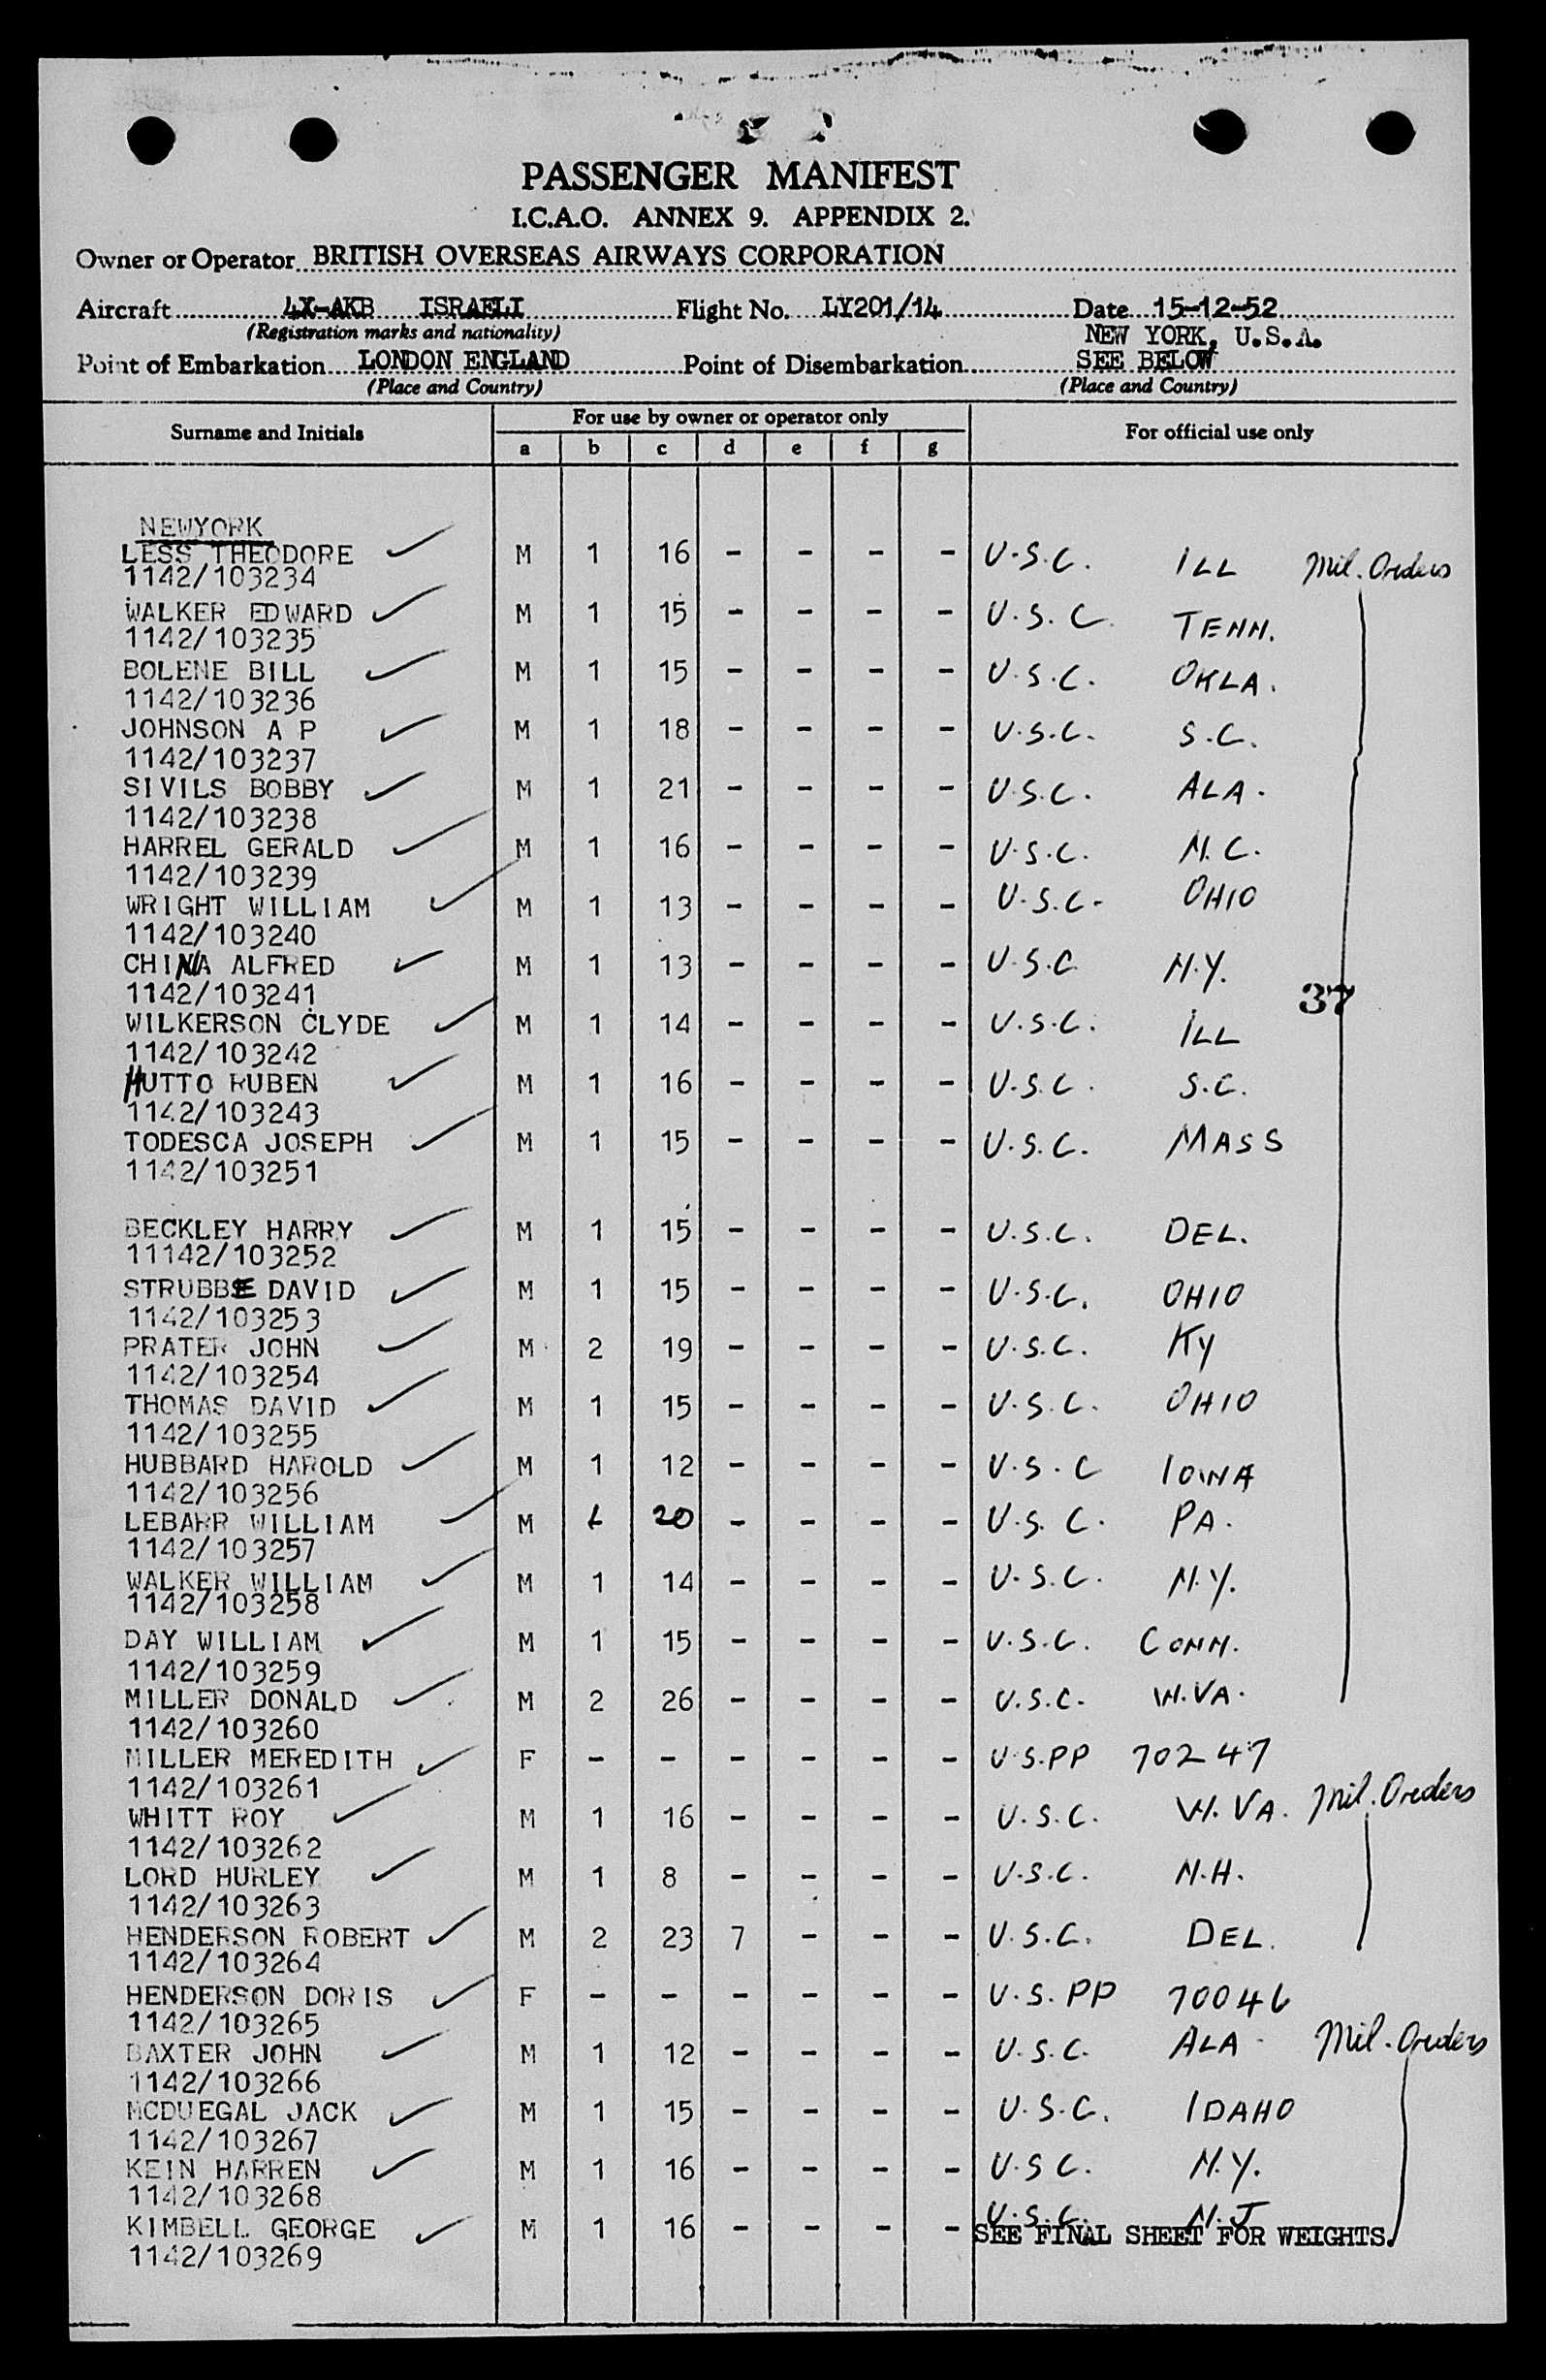 PASSENGER MANIFEST
I.C.A.O. ANNEX 9. APPENDIX 2.
Owner or Operator BRITISH OVERSEAS AIRWAYS CORPORATION
Aircraft 4X-AKB ISRAELI Flight No. LY201/14 Date 15-12-52
(Registration marks and nationality) NEW YORK, U.S.A.
Point of Embarkation LONDON ENGLAND Point of Disembarkation SEE BELOW
(Place and Country) (Place and Country)
Surname and Initials For use by owner or operator only For official use only
a b c d e f g
NEWYORK
LESS THEODORE M 1 16 - - - - U.S.C. ILL Mil. Orders
1142/103234
WALKER EDWARD M 1 15 - - - - U.S.C. TENN.
1142/103235
BOLENE BILL M 1 15 - - - - U.S.C. OKLA.
1142/103236
JOHNSON A P M 1 18 - - - - U.S.C. S.C.
1142/103237
SIVILS BOBBY M 1 21 - - - - U.S.C. ALA.
1142/103238
HARREL GERALD M 1 16 - - - - U.S.C. N.C.
1142/103239
WRIGHT WILLIAM M 1 13 - - - - U.S.C. OHIO
1142/103240
CHINA ALFRED M 1 13 - - - - U.S.C N.Y.
1142/103241 37
WILKERSON CLYDE M 1 14 - - - - U.S.C. ILL
1142/103242
HUTTO RUBEN M 1 16 - - - - U.S.C. S.C.
1142/103243
TODESCA JOSEPH M 1 15 - - - - U.S.C. MASS
1142/103251
BECKLEY HARRY M 1 15 - - - - U.S.C. DEL.
11142/103252
STRUBBE DAVID M 1 15 - - - - U.S.C. OHIO
1142/103253
PRATER JOHN M 2 19 - - - - U.S.C. KY
1142/103254
THOMAS DAVID M 1 15 - - - - U.S.C. OHIO
1142/103255
HUBBARD HAROLD M 1 12 - - - - U.S.C IOWA
1142/103256
LEBARR WILLIAM M 20 - - - - U.S.C. PA.
1142/103257
WALKER WILLIAM M 1 14 - - - - U.S.C. N.Y.
1142/103258
DAY WILLIAM M 1 15 - - - - U.S.C. CONN.
1142/103259
MILLER DONALD M 2 26 - - - - U.S.C. W.VA.
1142/103260
MILLER MEREDITH F - - - - - - U.S.PP 70247
1142/103261
WHITT ROY M 1 16 - - - - U.S.C. W.VA. Mil. Orders
1142/103262
LORD HURLEY M 1 8 - - - - U.S.C. N.H.
1142/103263
HENDERSON ROBERT M 2 23 7 - - - U.S.C. DEL.
1142/103264
HENDERSON DORIS F - - - - - - U.S.PP 70046
1142/103265
BAXTER JOHN M 1 12 - - - - U.S.C. ALA Mil. Orders
1142/103266
MCDUEGAL JACK M 1 15 - - - - U.S.C. IDAHO
1142/103267
KEIN HARREN M 1 16 - - - - U.S C. N.Y.
1142/103268
KIMBELL GEORGE M 1 16 - - - - U.S.C. N.J
SEE FINAL SHEET FOR WEIGHTS.
1142/103269